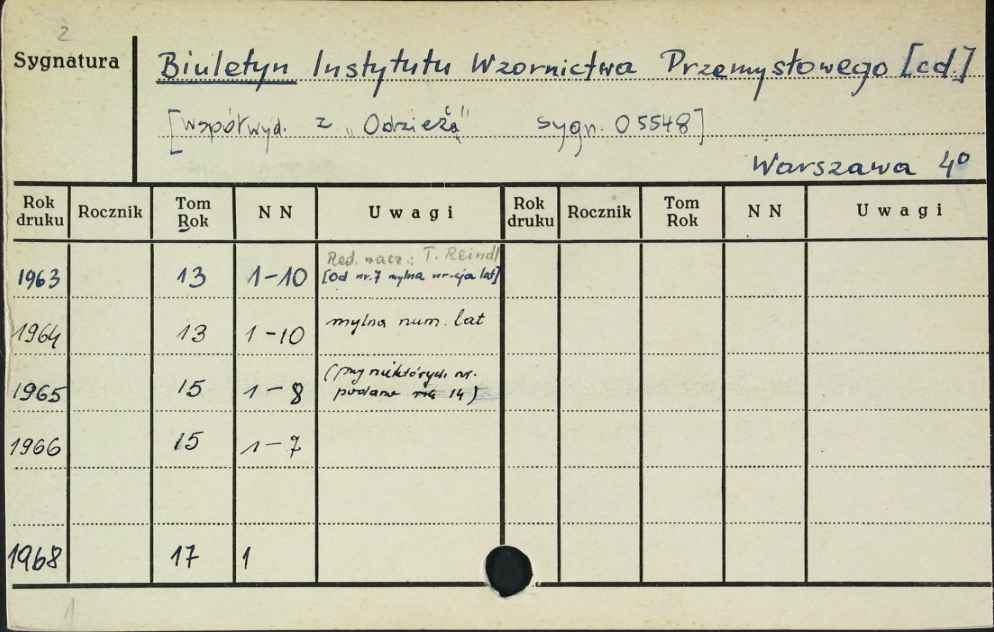 2
Sygnatura
Biuletyn Instytutu Wzornictwa Przemysłowego [cd.]
[współwyd. z „Odzieżą” sygn. 05548]
Warszawa 4°
Rok druku Rocznik Tom Rok N N Uwagi Rok druku Rocznik Tom Rok N N Uwagi
Red. nacz.: T. Reindl
1963 13 1-10 [Od nr. 7 mylna nr-cja lat]
1964 13 1-10 mylna num. lat
(przy niektórych nr.
1965 15 1-8 podane 14)
1966 15 1-7
1968 17 1
1